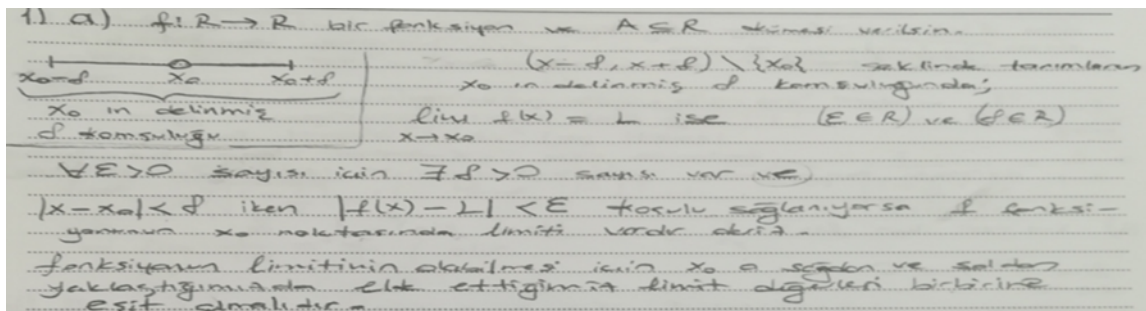 1) a) f: R → R bir fonksiyon ve A ⊆ R kümesi verilsin.
x₀-δ x₀ x₀+δ
x₀ in delinmiş
δ komşuluğu
(x-δ, x+δ) \ {x₀} şeklinde tanımlanan
x₀ ın delinmiş δ komşuluğunda;
lim f(x) = L ise (ε ∈ R) ve (δ ∈ R)
x→x₀
∀ε>0 sayısı için ∃δ>0 sayısı var ve
|x-x₀|<δ iken |f(x)-L|<ε koşulu sağlanıyorsa f fonksi-
yonunun x₀ noktasında limiti vardır deriz.
fonksiyonun limitinin olabilmesi için x₀ a sağdan ve soldan
yaklaştığımızda elde ettiğimiz limit değerleri birbirine
eşit olmalıdır.